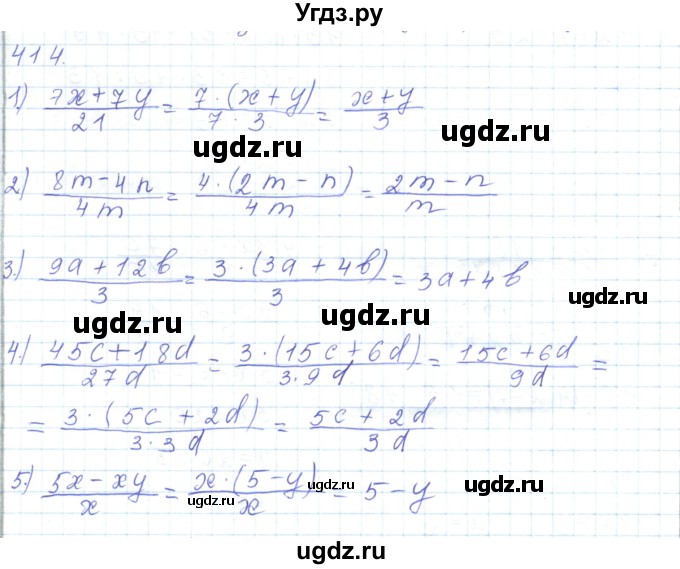 Угдз.ру
414.
1) (7x+7y)/21 = (7·(x+y))/(7·3) = (x+y)/3
ugdz.ru
ugdz.ru
2) (8m-4n)/4m = (4·(2m-n))/4m = (2m-n)/m
3.) (9a+12b)/3 = (3·(3a+4b))/3 = 3a+4b
ugdz.ru
ugdz.ru
4.) (45c+18d)/27d = (3·(15c+6d))/(3·9d) = (15c+6d)/9d =
= (3·(5c+2d))/(3·3d) = (5c+2d)/3d
ugdz.ru
5.) (5x-xy)/x = (x·(5-y))/x = 5-y
ugdz.ru
ugdz.ru
ugdz.ru
ugdz.ru